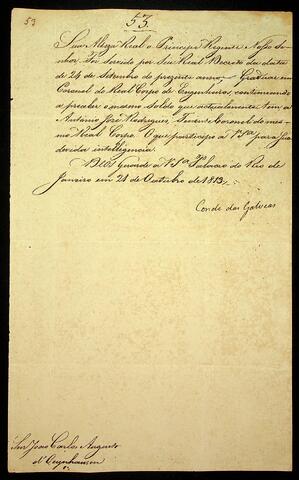 53
53.
Sua Alteza Real o Principe Regente Nosso Se-
nhor Foi servido por Seu Real Decreto da data
de 24 de Setembro do prezente anno, Graduar em
Coronel do Real Corpo de Engenheiros, continuando
a preceber o mesmo Soldo que actualmente tem a
Antonio José Rodrigues, Tenente Coronel do mes-
mo Real Corpo. O que participo a VSa. para Sua
devida intelligencia.
Deos Guarde a VSa. Palacio do Rio de
Janeiro em 21 de Outubro de 1813.
Conde das Galveas
Snr. João Carlos Augusto
d'Oeynhausen